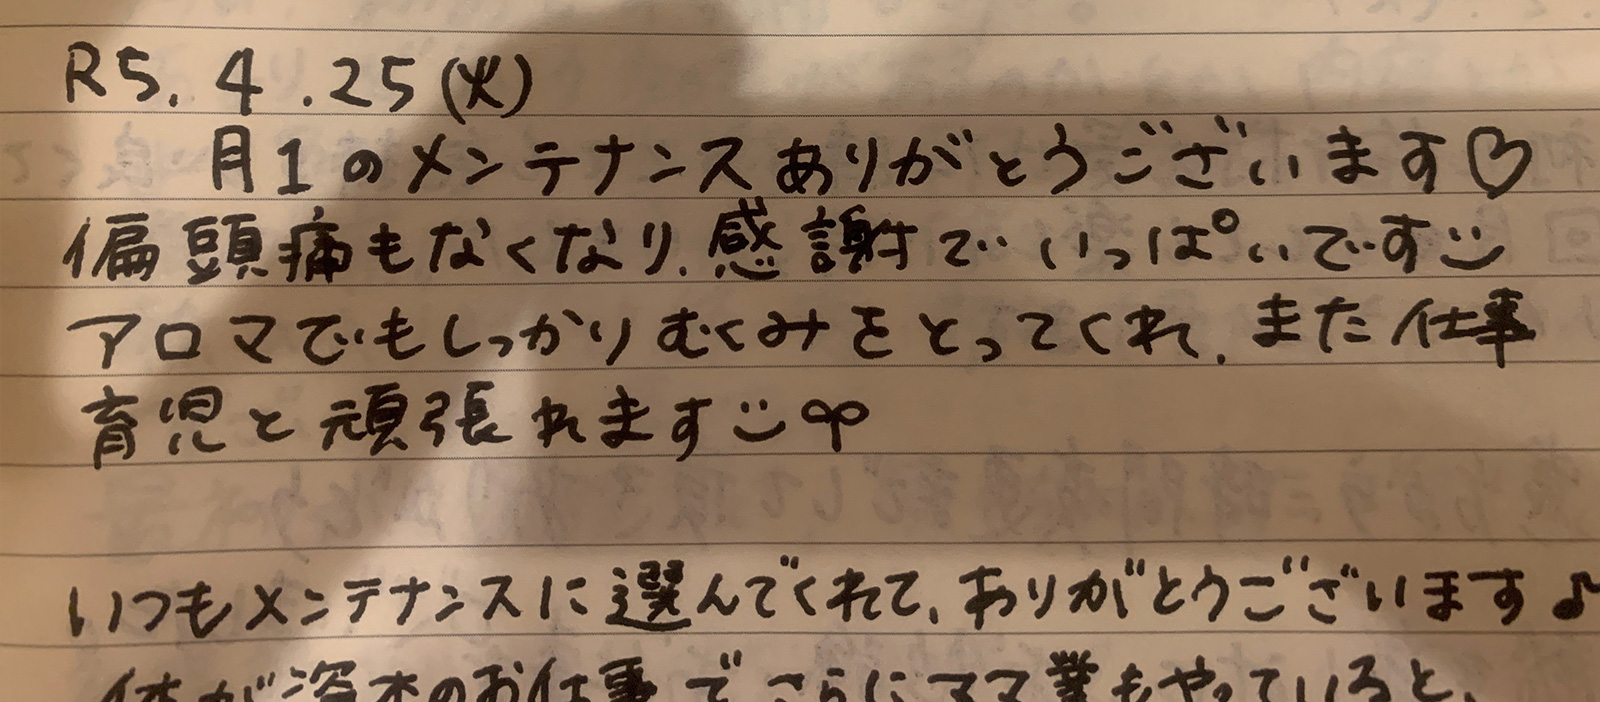 R5.4.25(火)
月1のメンテナンスありがとうございます♡
偏頭痛もなくなり、感謝でいっぱいです
アロマでもしっかりむくみをとってくれ、また仕事
育児と頑張れます
いつもメンテナンスに選んでくれて、ありがとうございます♪
体が資本のお仕事でさらにママ業もやっていると、